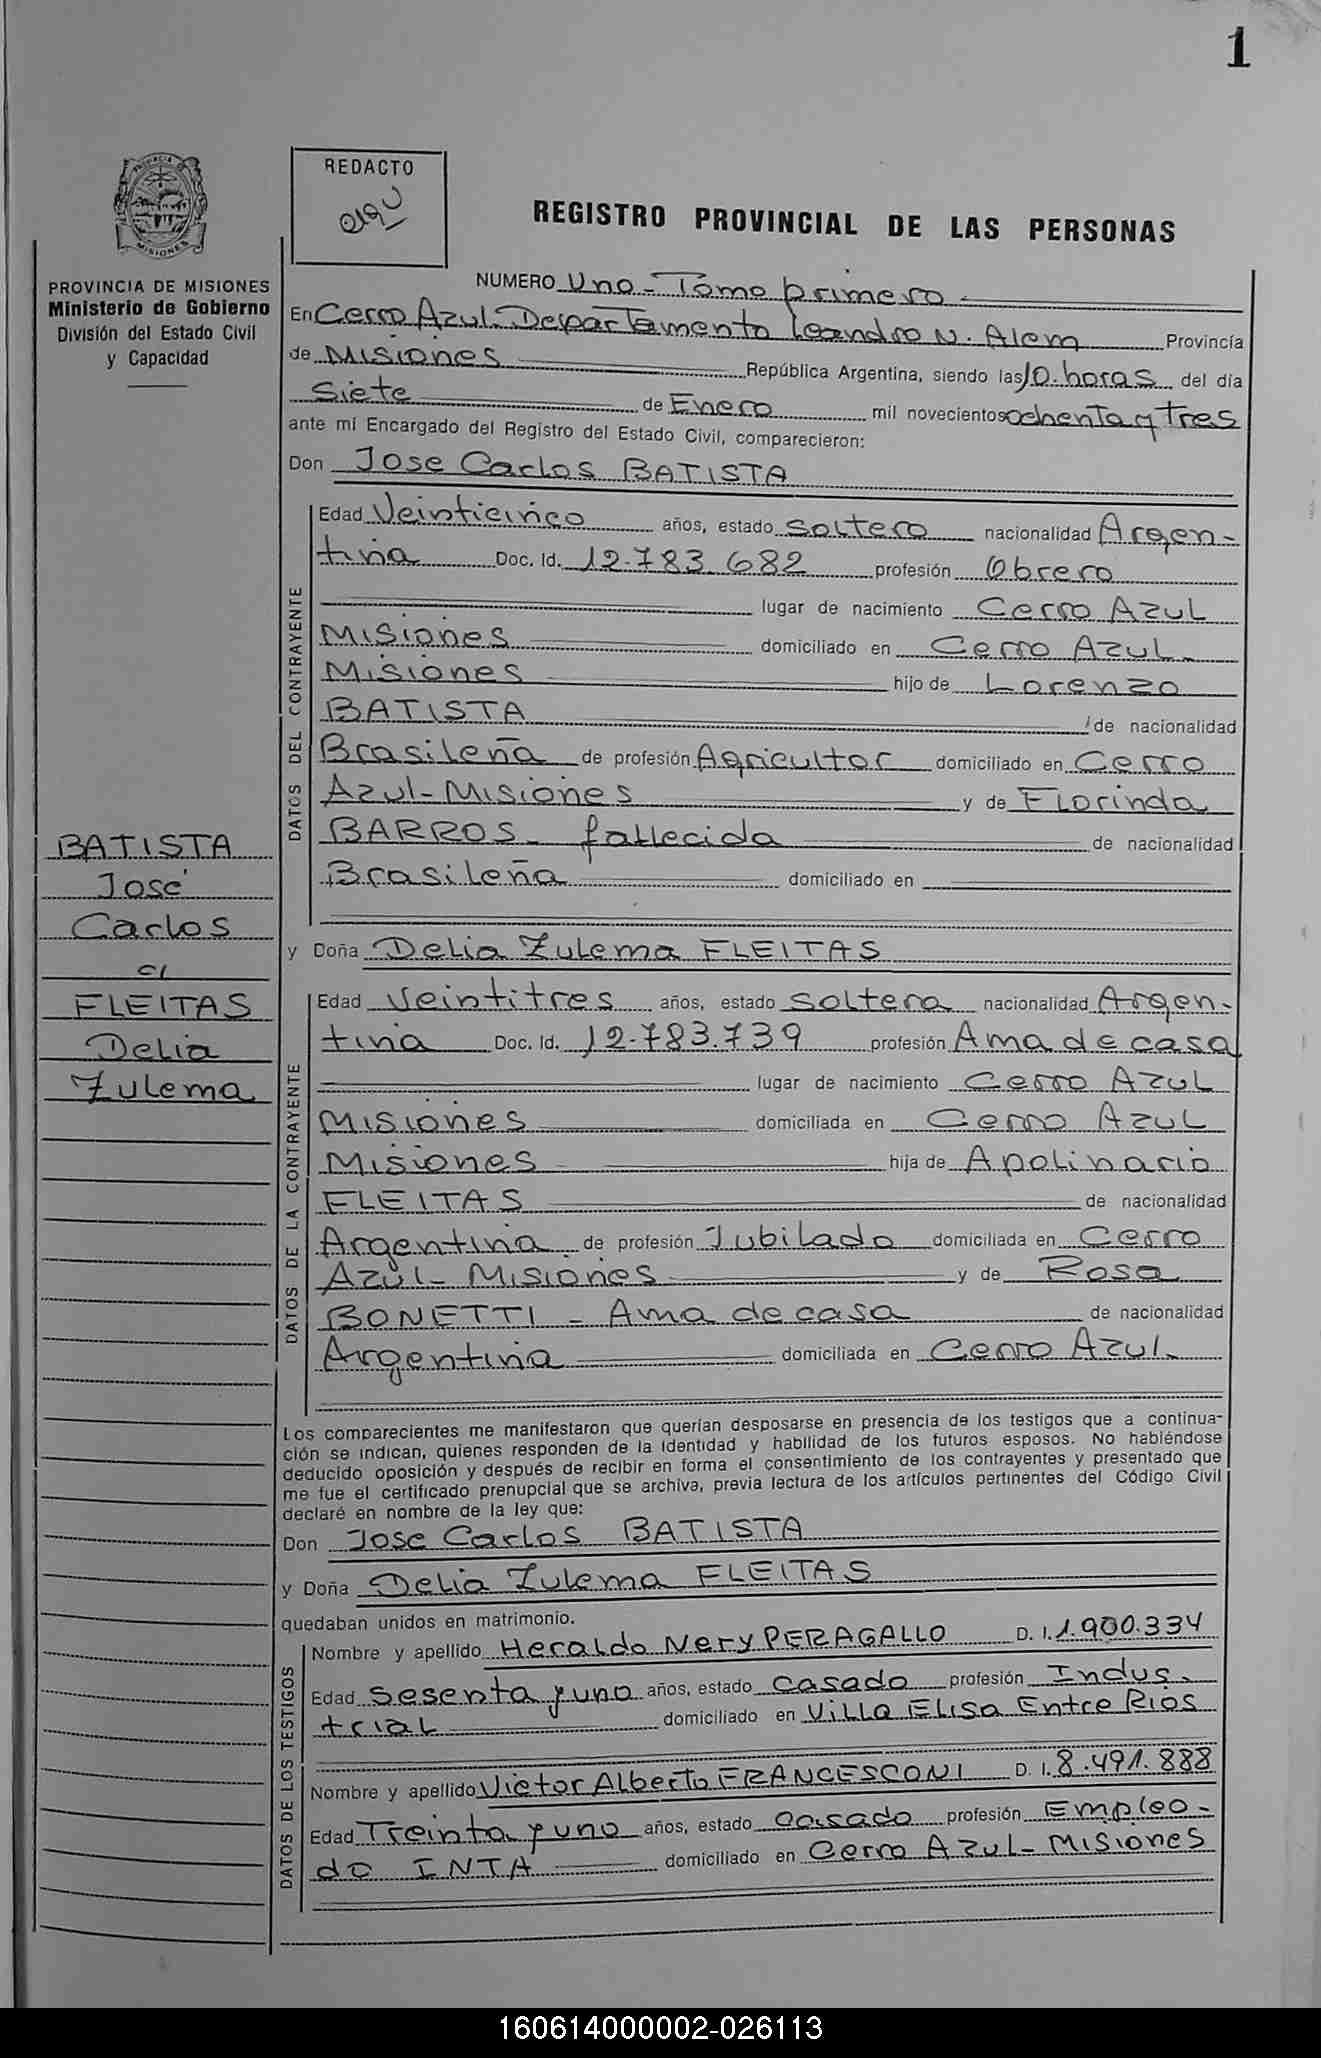 1
PROVINCIA DE MISIONES
Ministerio de Gobierno
División del Estado Civil
y Capacidad
REDACTO
REGISTRO PROVINCIAL DE LAS PERSONAS
NUMERO Uno - Tomo primero
En Cerro Azul. Departamento Leandro N. Alem Provincia
de Misiones República Argentina, siendo las 10. horas del día
Siete de Enero mil novecientos ochenta y tres
ante mí Encargado del Registro del Estado Civil, comparecieron:
Don Jose Carlos BATISTA
DATOS DEL CONTRAYENTE
Edad Veinticinco años, estado soltero nacionalidad Argen-
tina Doc. Id. 12.783.682 profesión Obrero
lugar de nacimiento Cerro AZUL
Misiones domiciliado en Cerro AZUL-
Misiones hijo de Lorenzo
BATISTA de nacionalidad
Brasileña de profesión Agricultor domiciliado en Cerro
Azul-Misiones y de Florinda
BARROS - fallecida de nacionalidad
Brasileña domiciliado en
BATISTA
José
Carlos
c/
FLEITAS
Delia
Zulema
y Doña Delia Zulema FLEITAS
DATOS DE LA CONTRAYENTE
Edad Veintitres años, estado soltera nacionalidad Argen-
tina Doc. Id. 12.783.739 profesión Ama de casa
lugar de nacimiento Cerro AZUL
Misiones domiciliada en Cerro AZUL
Misiones hija de Apolinario
FLEITAS de nacionalidad
Argentina de profesión Jubilado domiciliada en Cerro
Azul- Misiones y de Rosa
BONETTI - Ama de casa de nacionalidad
Argentina domiciliada en Cerro Azul.
Los comparecientes me manifestaron que querían desposarse en presencia de los testigos que a continua-
ción se indican, quienes responden de la identidad y habilidad de los futuros esposos. No habiéndose
deducido oposición y después de recibir en forma el consentimiento de los contrayentes y presentado que
me fue el certificado prenupcial que se archiva, previa lectura de los artículos pertinentes del Código Civil
declaré en nombre de la ley que:
Don Jose Carlos BATISTA
y Doña Delia Zulema FLEITAS
quedaban unidos en matrimonio.
DATOS DE LOS TESTIGOS
Nombre y apellido Heraldo Nery PERAGALLO D. I. 1.900.334
Edad Sesenta y uno años, estado casado profesión Indus-
trial domiciliado en Villa Elisa Entre Rios
Nombre y apellido Victor Alberto FRANCESCONI D. I. 8.491.888
Edad Treinta y uno años, estado casado profesión Emplea-
do INTA domiciliado en Cerro Azul- Misiones
160614000002-026113